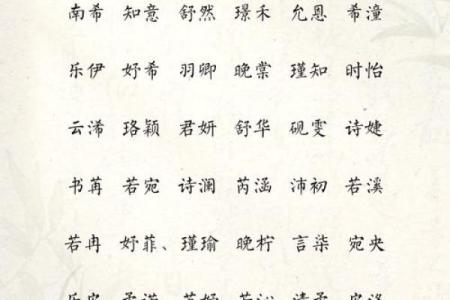 南希 知意 舒然 璟禾 允恩 希潼
乐伊 妤希 羽卿 晚棠 瑾知 时怡
云浠 珞颖 君妍 舒华 砚雯 诗婕
书苒 若宛 诗澜 芮涵 沛初 若溪
若冉 妤菲、瑾瑜 晚柠 言柒 宛央